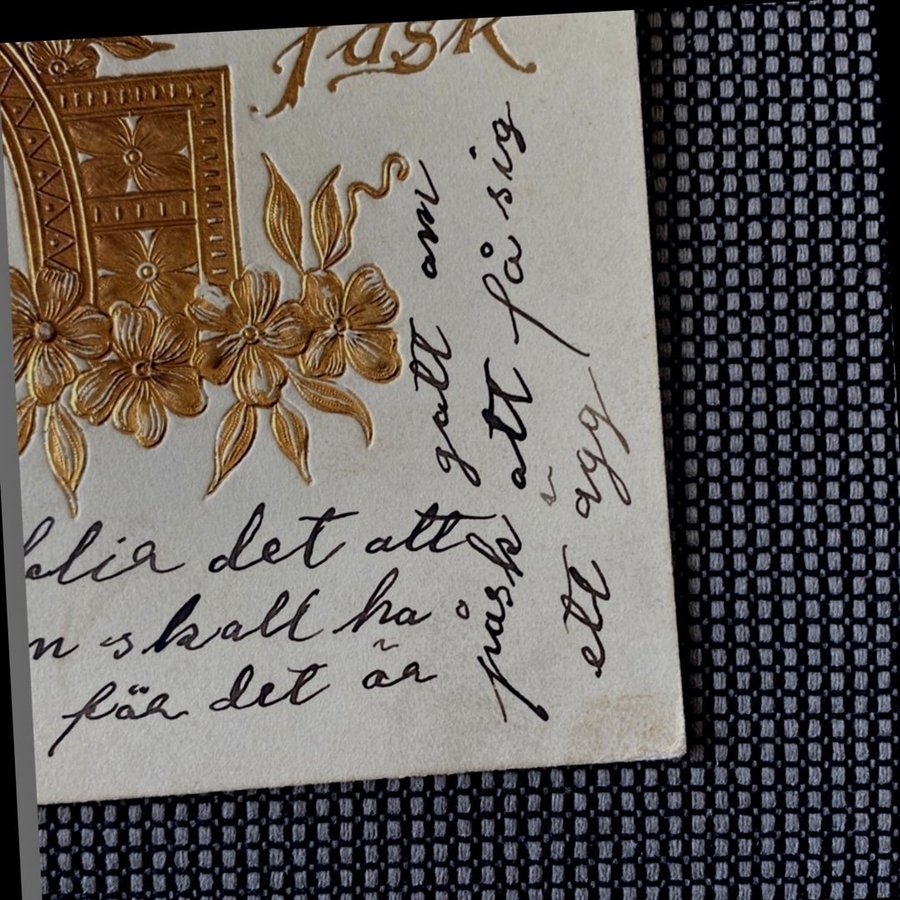 Påsk
blir det att
n skall ha
för det är
gott om
påsk att få sig
ett ägg